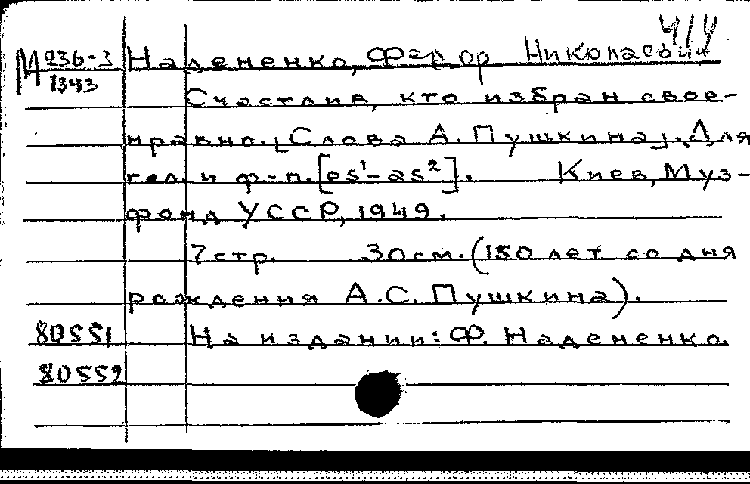 Ч/У
М 236-3 Надененко, Федор Николаевич
1343
Счастлив, кто избран свое-
нравно. [Слова А. Пушкина]. Для
гол. и ф.-п. [es¹-as²]. Киев, Муз-
фонд УССР, 1949.
7 стр. 30 см. (150 лет со дня
рождения А.С. Пушкина).
80551 На издании: Ф. Надененко.
80552